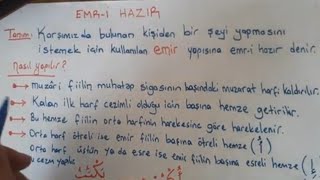 EMR-İ HAZIR
Tanım: Karşımızda bulunan kişiden bir şeyi yapmasını
istemek için kullanılan emir yapısına emri hazır denir.
Nasıl yapılır?
Muzâri fiilin muhatap sigasının başındaki muzarat harfi kaldırılır.
Kalan ilk harf cezimli olduğu için başına hemze getirilir.
Bu hemze fiilin orta harfinin harekesine göre harekelenir.
Orta harf ötreli ise emir fiilin başına ötreli hemze (أُ)
Orta harf üstün ya da esre ise emir fiilin başına esreli hemze (إِ
cezim yapılır